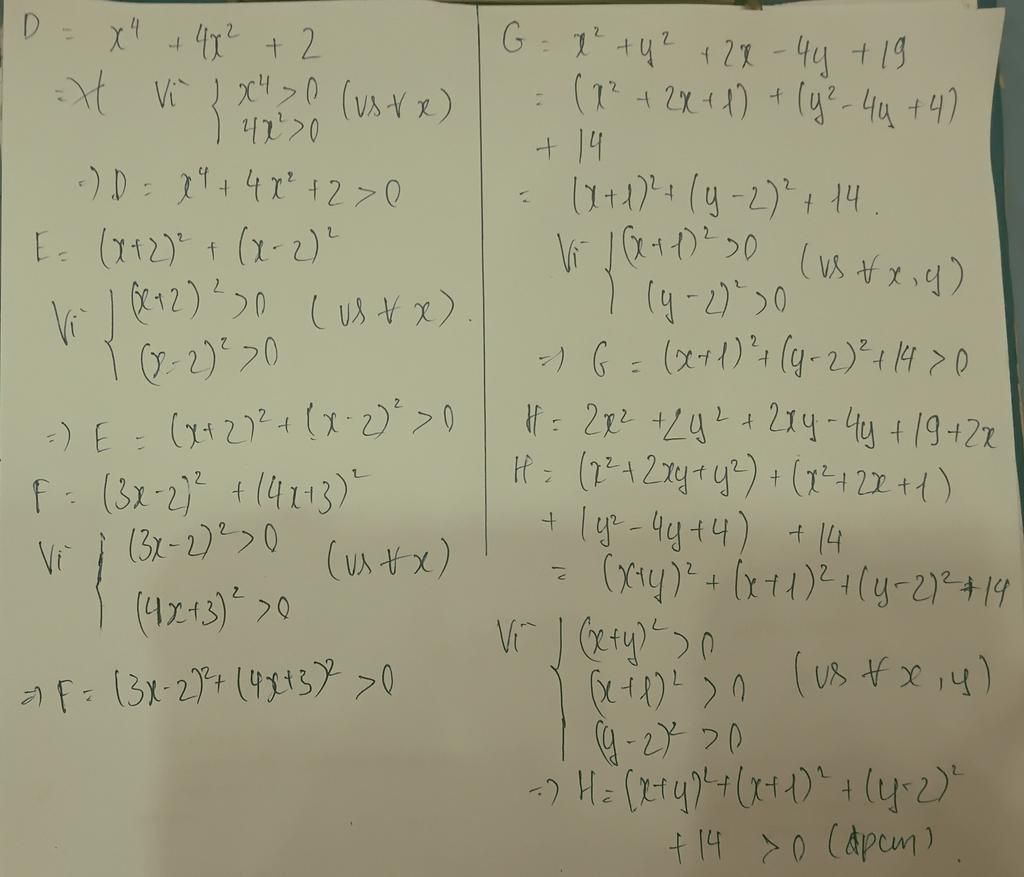 D = x⁴ + 4x² + 2
Vì { x⁴ > 0
4x² > 0 (vs ∀ x)
=) D = x⁴ + 4x² + 2 > 0
E = (x+2)² + (x-2)²
Vì { (x+2)² > 0 (vs ∀ x).
(x-2)² > 0
=) E = (x+2)² + (x-2)² > 0
F = (3x-2)² + (4x+3)²
Vì { (3x-2)² > 0 (vs ∀ x)
(4x+3)² > 0
=) F = (3x-2)² + (4x+3)² > 0
G = x² + y² + 2x - 4y + 19
= (x² + 2x + 1) + (y² - 4y + 4)
+ 14
= (x+1)² + (y-2)² + 14.
Vì { (x+1)² > 0 (vs ∀ x, y)
(y-2)² > 0
=) G = (x+1)² + (y-2)² + 14 > 0
H = 2x² + 2y² + 2xy - 4y + 19 + 2x
H = (x² + 2xy + y²) + (x² + 2x + 1)
+ (y² - 4y + 4) + 14
= (x+y)² + (x+1)² + (y-2)² + 14
Vì { (x+y)² > 0
(x+1)² > 0 (vs ∀ x, y)
(y-2)² > 0
=) H = (x+y)² + (x+1)² + (y-2)²
+ 14 > 0 (đpcm).